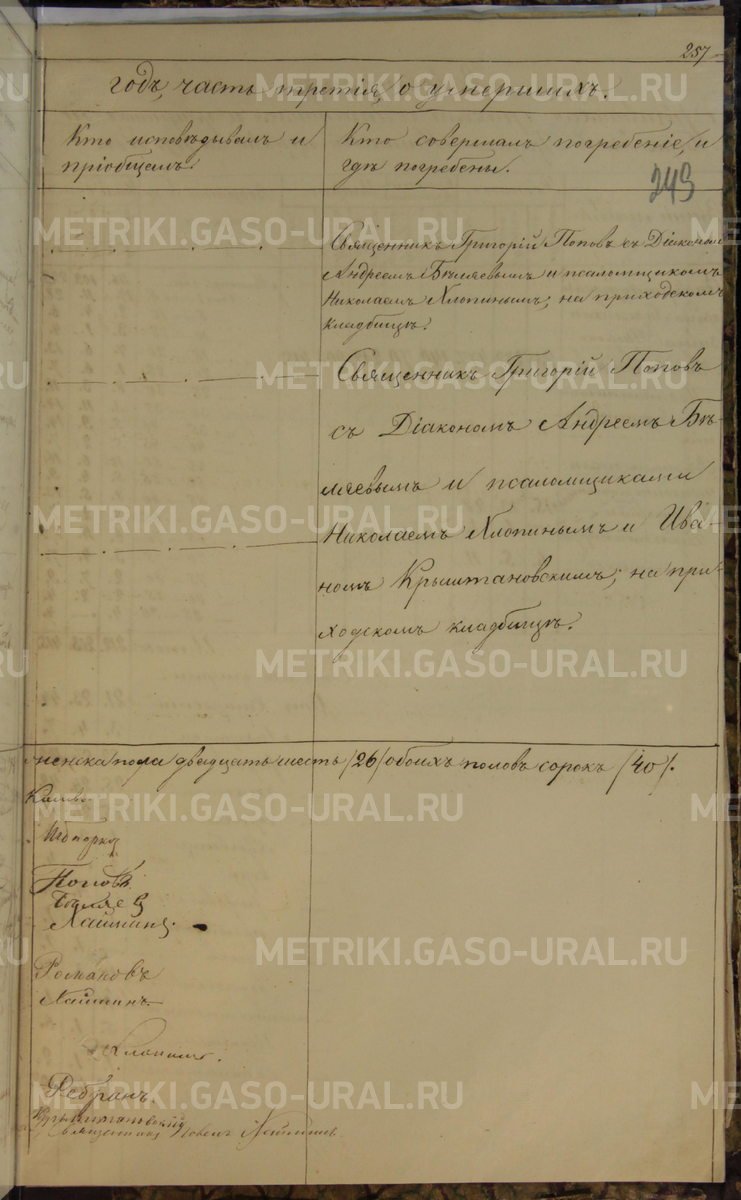 257
годъ, часть третія, о умершихъ.
Кто исповѣдывалъ и
пріобщалъ.
Кто совершалъ погребеніе, и
гдѣ погребены.
249
Священникъ Григорій Поповъ съ Діакономъ
Андреемъ Бѣляевымъ и псаломщикомъ
Николаемъ Хлопинымъ; на приходскомъ
кладбищѣ.
Священникъ Григорій Поповъ
съ Діакономъ Андреемъ Бѣ-
ляевымъ и псаломщиками
Николаемъ Хлопинымъ и Ива-
номъ Крыштановскимъ; на при-
ходскомъ кладбищѣ.
женска пола двадцать шесть /26/ обоихъ половъ сорокъ /40/.
Поповъ
Бѣляев
Романовъ
Хлопинъ.
Ребринъ.
Крыштановскій
Священникъ
METRIKI.GASO-URAL.RU